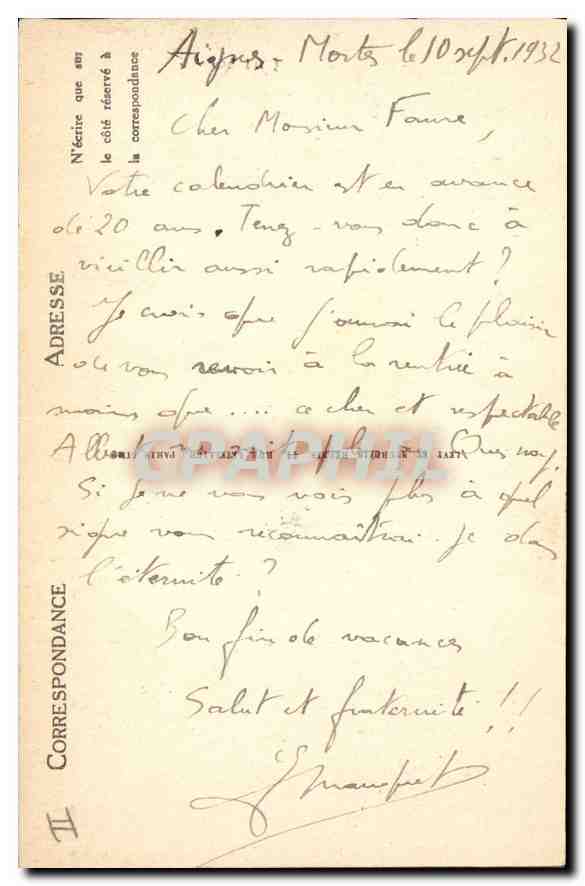 Aigues-Mortes le 10 sept. 1932
Cher Monsieur Faure,
Votre calendrier est en avance
de 20 ans. Tenez-vous donc à
vieillir aussi rapidement ?
Je crois que j'aurai le plaisir
de vous revoir à la rentrée à
moins que .... ce cher et respectable
Albert ne soit plus à Quesnoy.
Si je ne vous vois plus à quel
signe vous reconnaîtrai-je dans
l'éternité ?
Bon fin de vacances
Salut et fraternité !!
N'écrire que sur
le côté réservé à
la correspondance
ADRESSE
CORRESPONDANCE
II
CPAPHIL